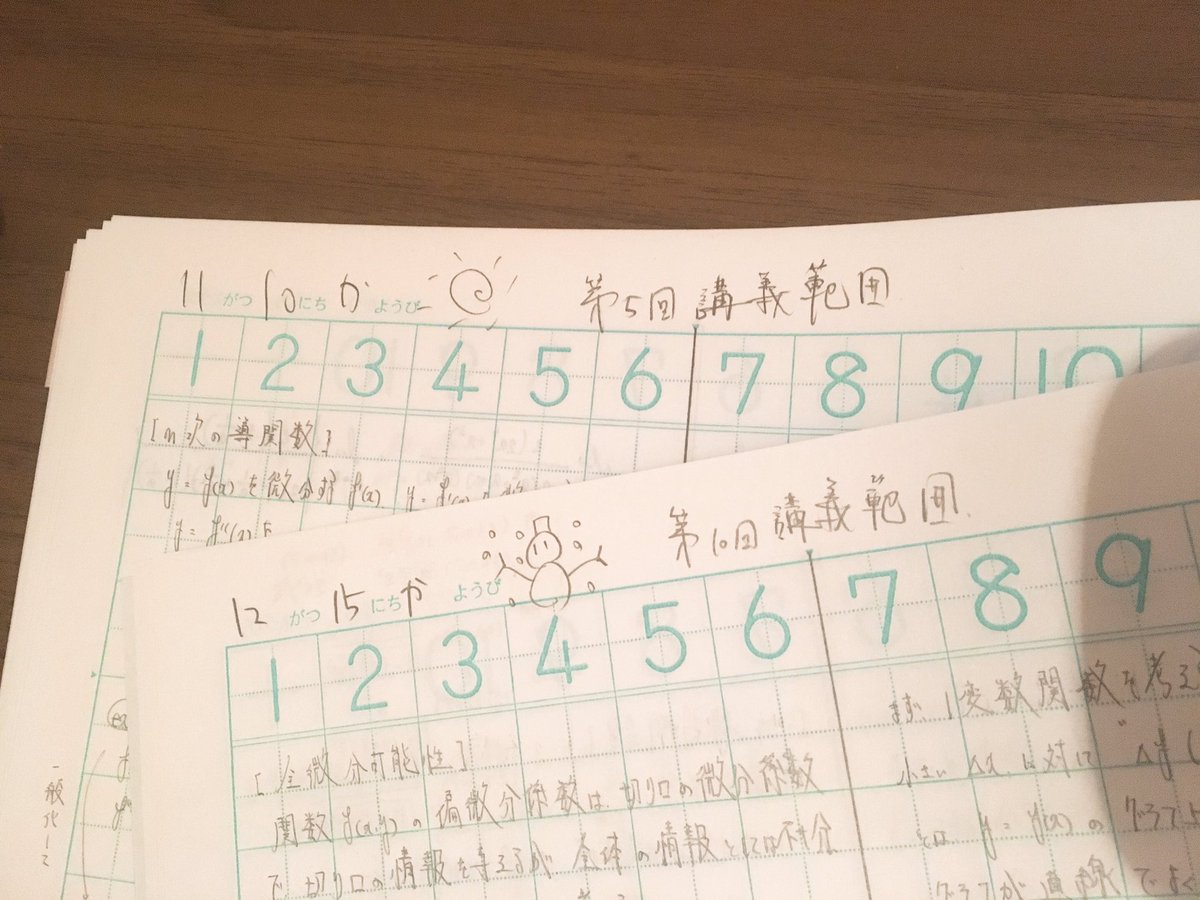 11 がつ 10 にち か ようび 第5回 講義範囲
1 2 3 4 5 6 7 8 9 10
[n次の導関数]
y=f(x)を微分する f'(x) y=f'(x)
y=f''(x)
一般化して
12 がつ 15 にち か ようび 第10回 講義範囲
1 2 3 4 5 6 7 8 9
[全微分可能性]
関数f(x,y)の偏微分係数は、切り口の微分係数
で切り口の情報を与えるが全体の情報としては不十分
まず1変数関数を考える
小さいΔxに対して Δf(
とは y=f(x)のグラフ上
グラフが直線でよく